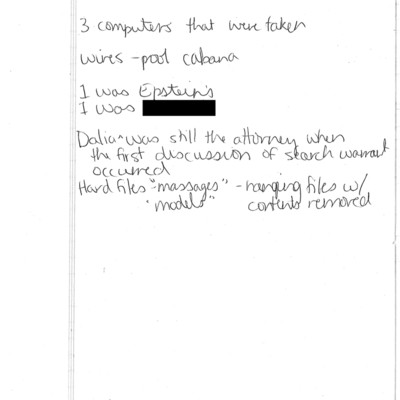 3 computers that were taken
wires - pool cabana
1 was Epstein's
1 was
Dalia^was still the attorney when
the first discussion of search warrant
occurred
Hard files "massages" - hanging files w/
"models" contents removed